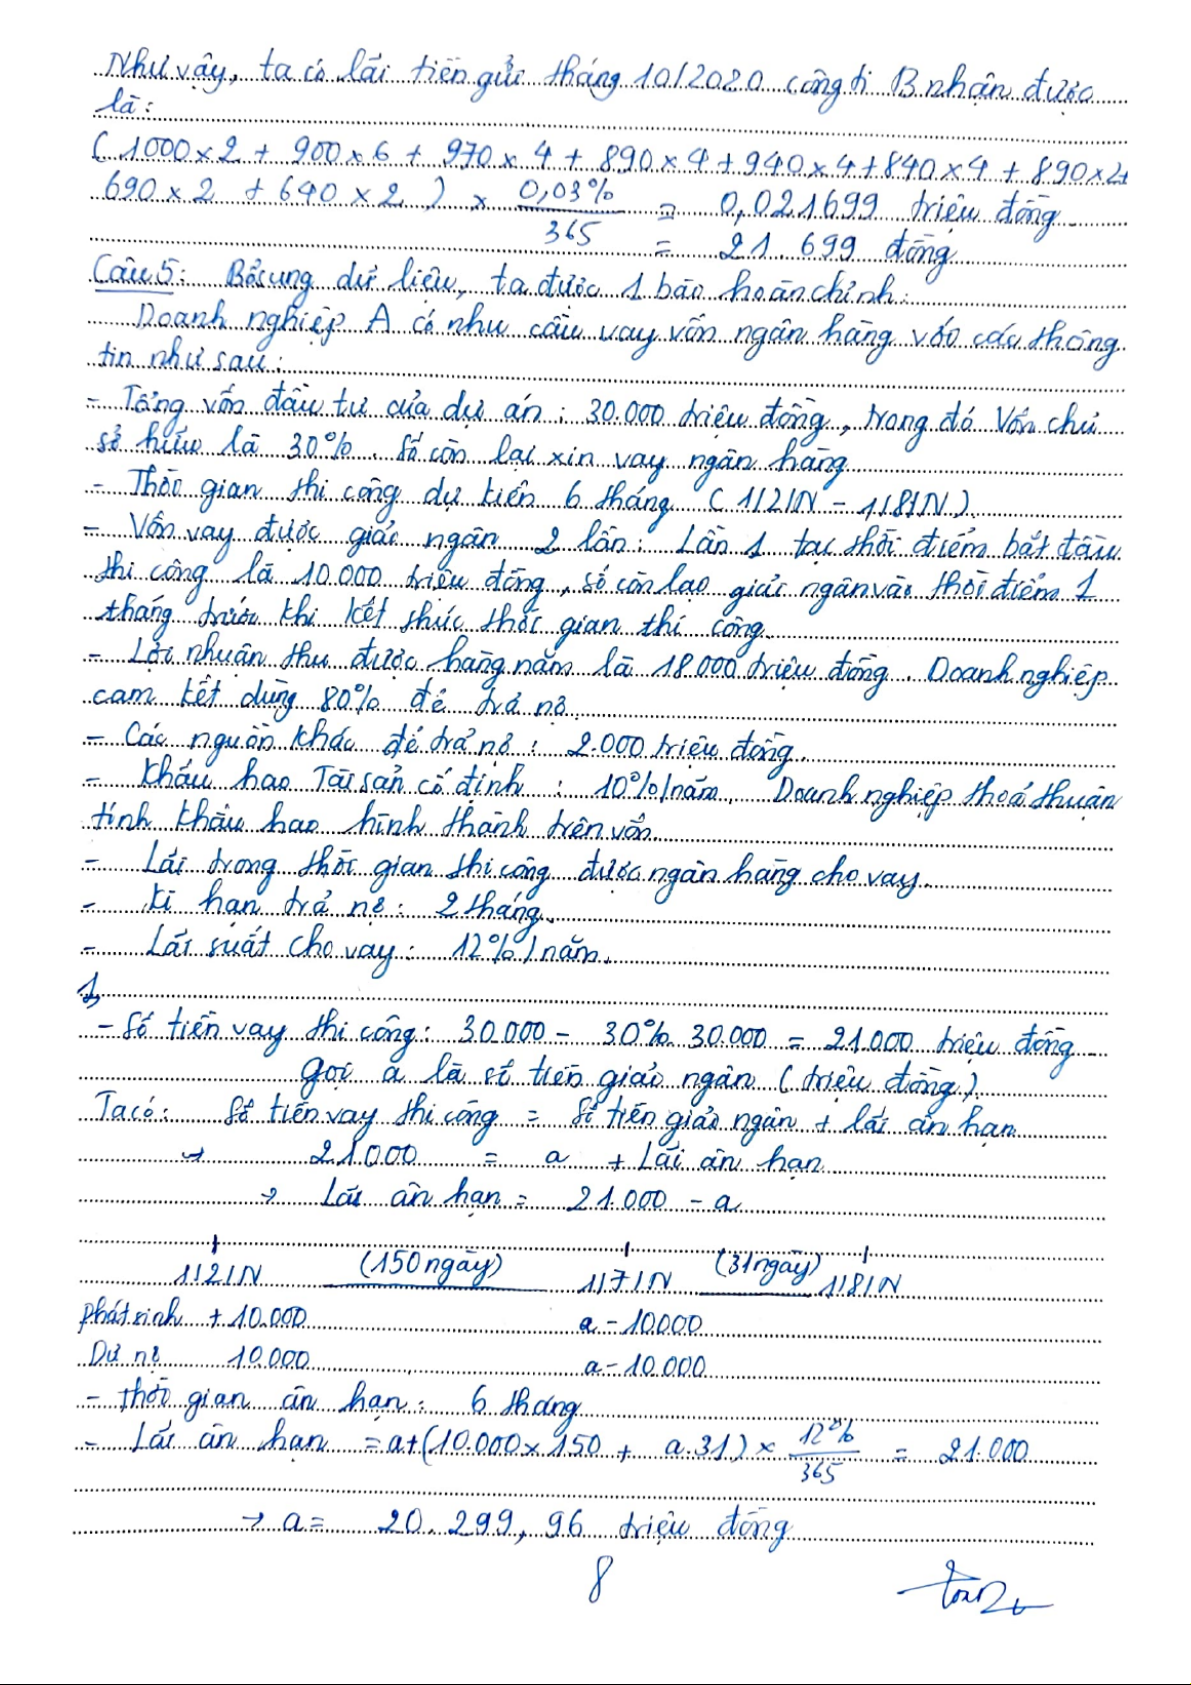 Như vậy, ta có lãi tiền gửi tháng 10/2020 công ti B nhận được
là:
( 1000 x 2 + 900 x 6 + 970 x 4 + 890 x 4 + 940 x 4 + 840 x 4 + 890 x 2 +
690 x 2 + 640 x 2 ) x 0,03% / 365 = 0,021699 triệu đồng
= 21.699 đồng
Câu 5: Bổ sung dữ liệu, ta được 1 bào hoàn chỉnh:
Doanh nghiệp A có nhu cầu vay vốn ngân hàng với các thông
tin như sau:
- Tổng vốn đầu tư của dự án: 30.000 triệu đồng, trong đó Vốn chủ
sở hữu là 30%. Số còn lại xin vay ngân hàng
- Thời gian thi công dự kiến 6 tháng ( 1/2/N - 1/8/N ).
- Vốn vay được giải ngân 2 lần: Lần 1 tại thời điểm bắt đầu
thi công là 10.000 triệu đồng, số còn lại giải ngân vào thời điểm 1
tháng trước khi kết thúc thời gian thi công
- Lợi nhuận thu được hàng năm là 18.000 triệu đồng. Doanh nghiệp
cam kết dùng 80% để trả nợ
- Các nguồn khác để trả nợ: 2.000 triệu đồng.
- Khấu hao Tài sản cố định: 10%/năm. Doanh nghiệp thoả thuận
tính khấu hao hình thành trên vốn.
- Lãi trong thời gian thi công được ngân hàng cho vay.
- Kì hạn trả nợ: 2 tháng.
- Lãi suất cho vay: 12%/năm.
1,
- Số tiền vay thi công: 30.000 - 30%.30.000 = 21.000 triệu đồng
Gọi a là số tiền giải ngân (triệu đồng)
Ta có: Số tiền vay thi công = Số tiền giải ngân + lãi ân hạn
→ 21.000 = a + Lãi ân hạn
→ Lãi ân hạn = 21.000 - a
(150 ngày) (31 ngày)
1/2/N 1/7/N 1/8/N
Phát sinh + 10.000 a - 10.000
Dư nợ 10.000 a - 10.000
- Thời gian ân hạn: 6 tháng
- Lãi ân hạn = a + (10.000 x 150 + a.31) x 12% / 365 = 21.000
→ a = 20.299,96 triệu đồng
8